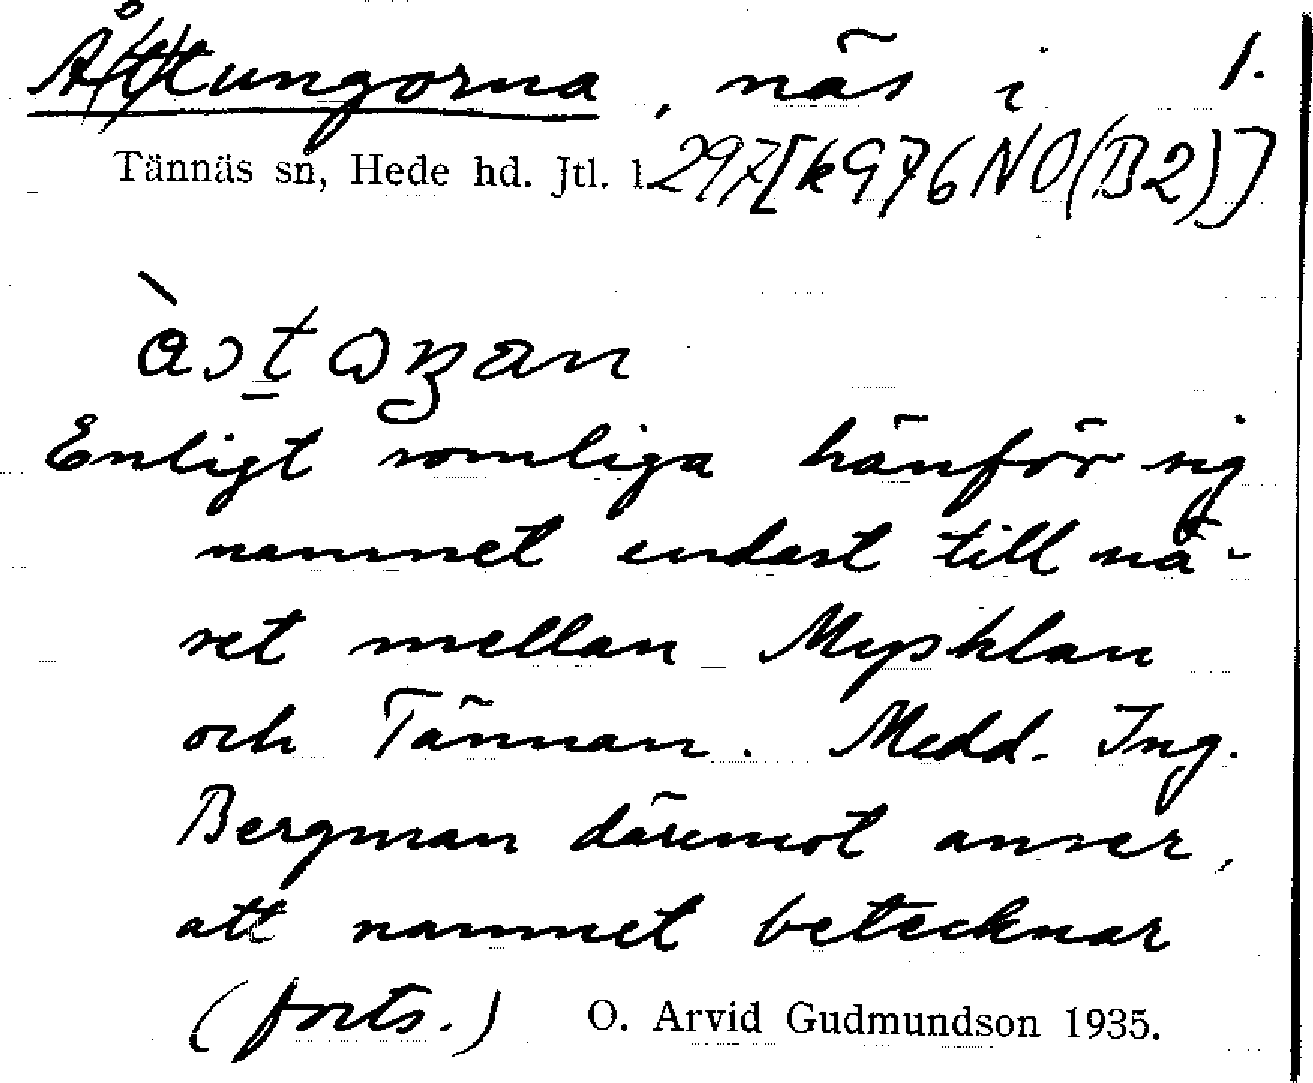 Å(t)tungorna, näs i 1.
Tännäs sn, Hede hd. Jtl. l. 297[k976NO(B2)]
Enligt somliga hänför sig
namnet endast till nä-
set mellan Mysklan
och Tännan. Medd. Ing.
Bergman däremot anser,
att namnet betecknar
(forts.) O. Arvid Gudmundson 1935.